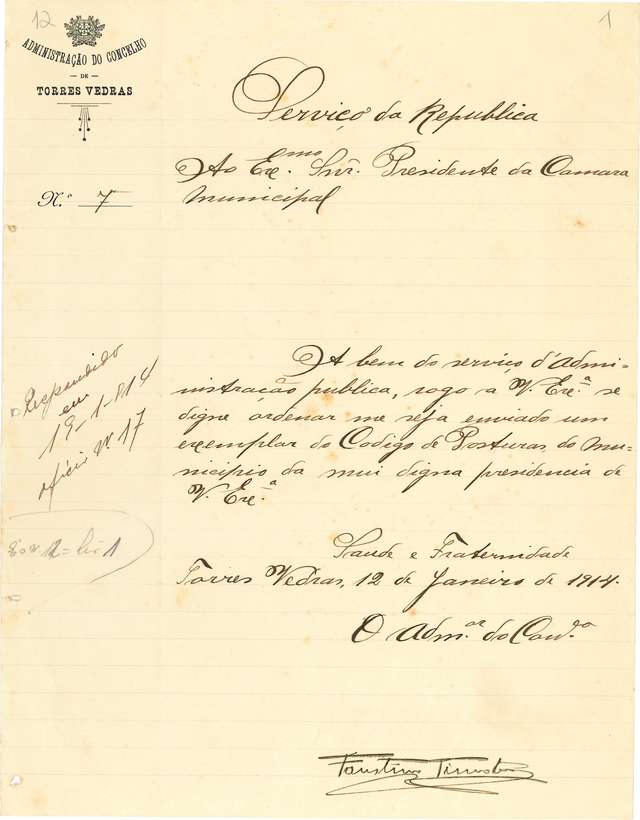 12
1
ADMINISTRAÇÃO DO CONCELHO
DE
TORRES VEDRAS
Serviço da Republica
Ao Exe.mo Snr. Presidente da Camara
Municipal
N.º 7
A bem do serviço d'Admi-
nistração publica, rogo a V. Exe.ª se
digne ordenar me seja enviado um
exemplar do Codigo de Posturas do mu-
nicipio da mui digna presidencia de
V. Exe.ª
Respondido
em
19-1-914
oficio Nº 17
1
Saude e Fraternidade
Torres Vedras, 12 de Janeiro de 1914.
O Adm.or do Con.do
Faustino